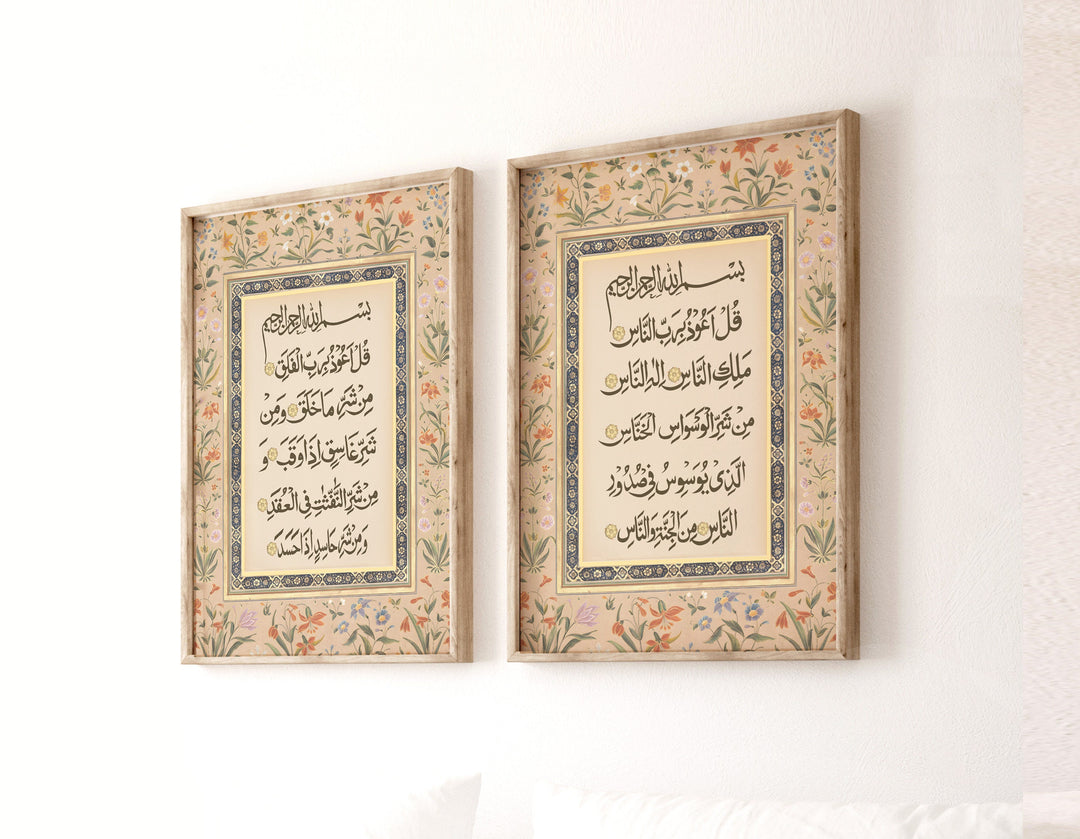 بِسْمِ اللهِ الرَّحْمٰنِ الرَّحِيْمِ
قُلْ اَعُوْذُ بِرَبِّ الْفَلَقِ
مِنْ شَرِّ مَا خَلَقَ وَمِنْ
شَرِّ غَاسِقٍ اِذَا وَقَبَ وَ
مِنْ شَرِّ النَّفّٰثٰتِ فِى الْعُقَدِ
وَمِنْ شَرِّ حَاسِدٍ اِذَا حَسَدَ
بِسْمِ اللهِ الرَّحْمٰنِ الرَّحِيْمِ
قُلْ اَعُوْذُ بِرَبِّ النَّاسِ
مَلِكِ النَّاسِ اِلٰهِ النَّاسِ
مِنْ شَرِّ الْوَسْوَاسِ الْخَنَّاسِ
الَّذِىْ يُوَسْوِسُ فِىْ صُدُوْرِ
النَّاسِ مِنَ الْجِنَّةِ وَالنَّاسِ